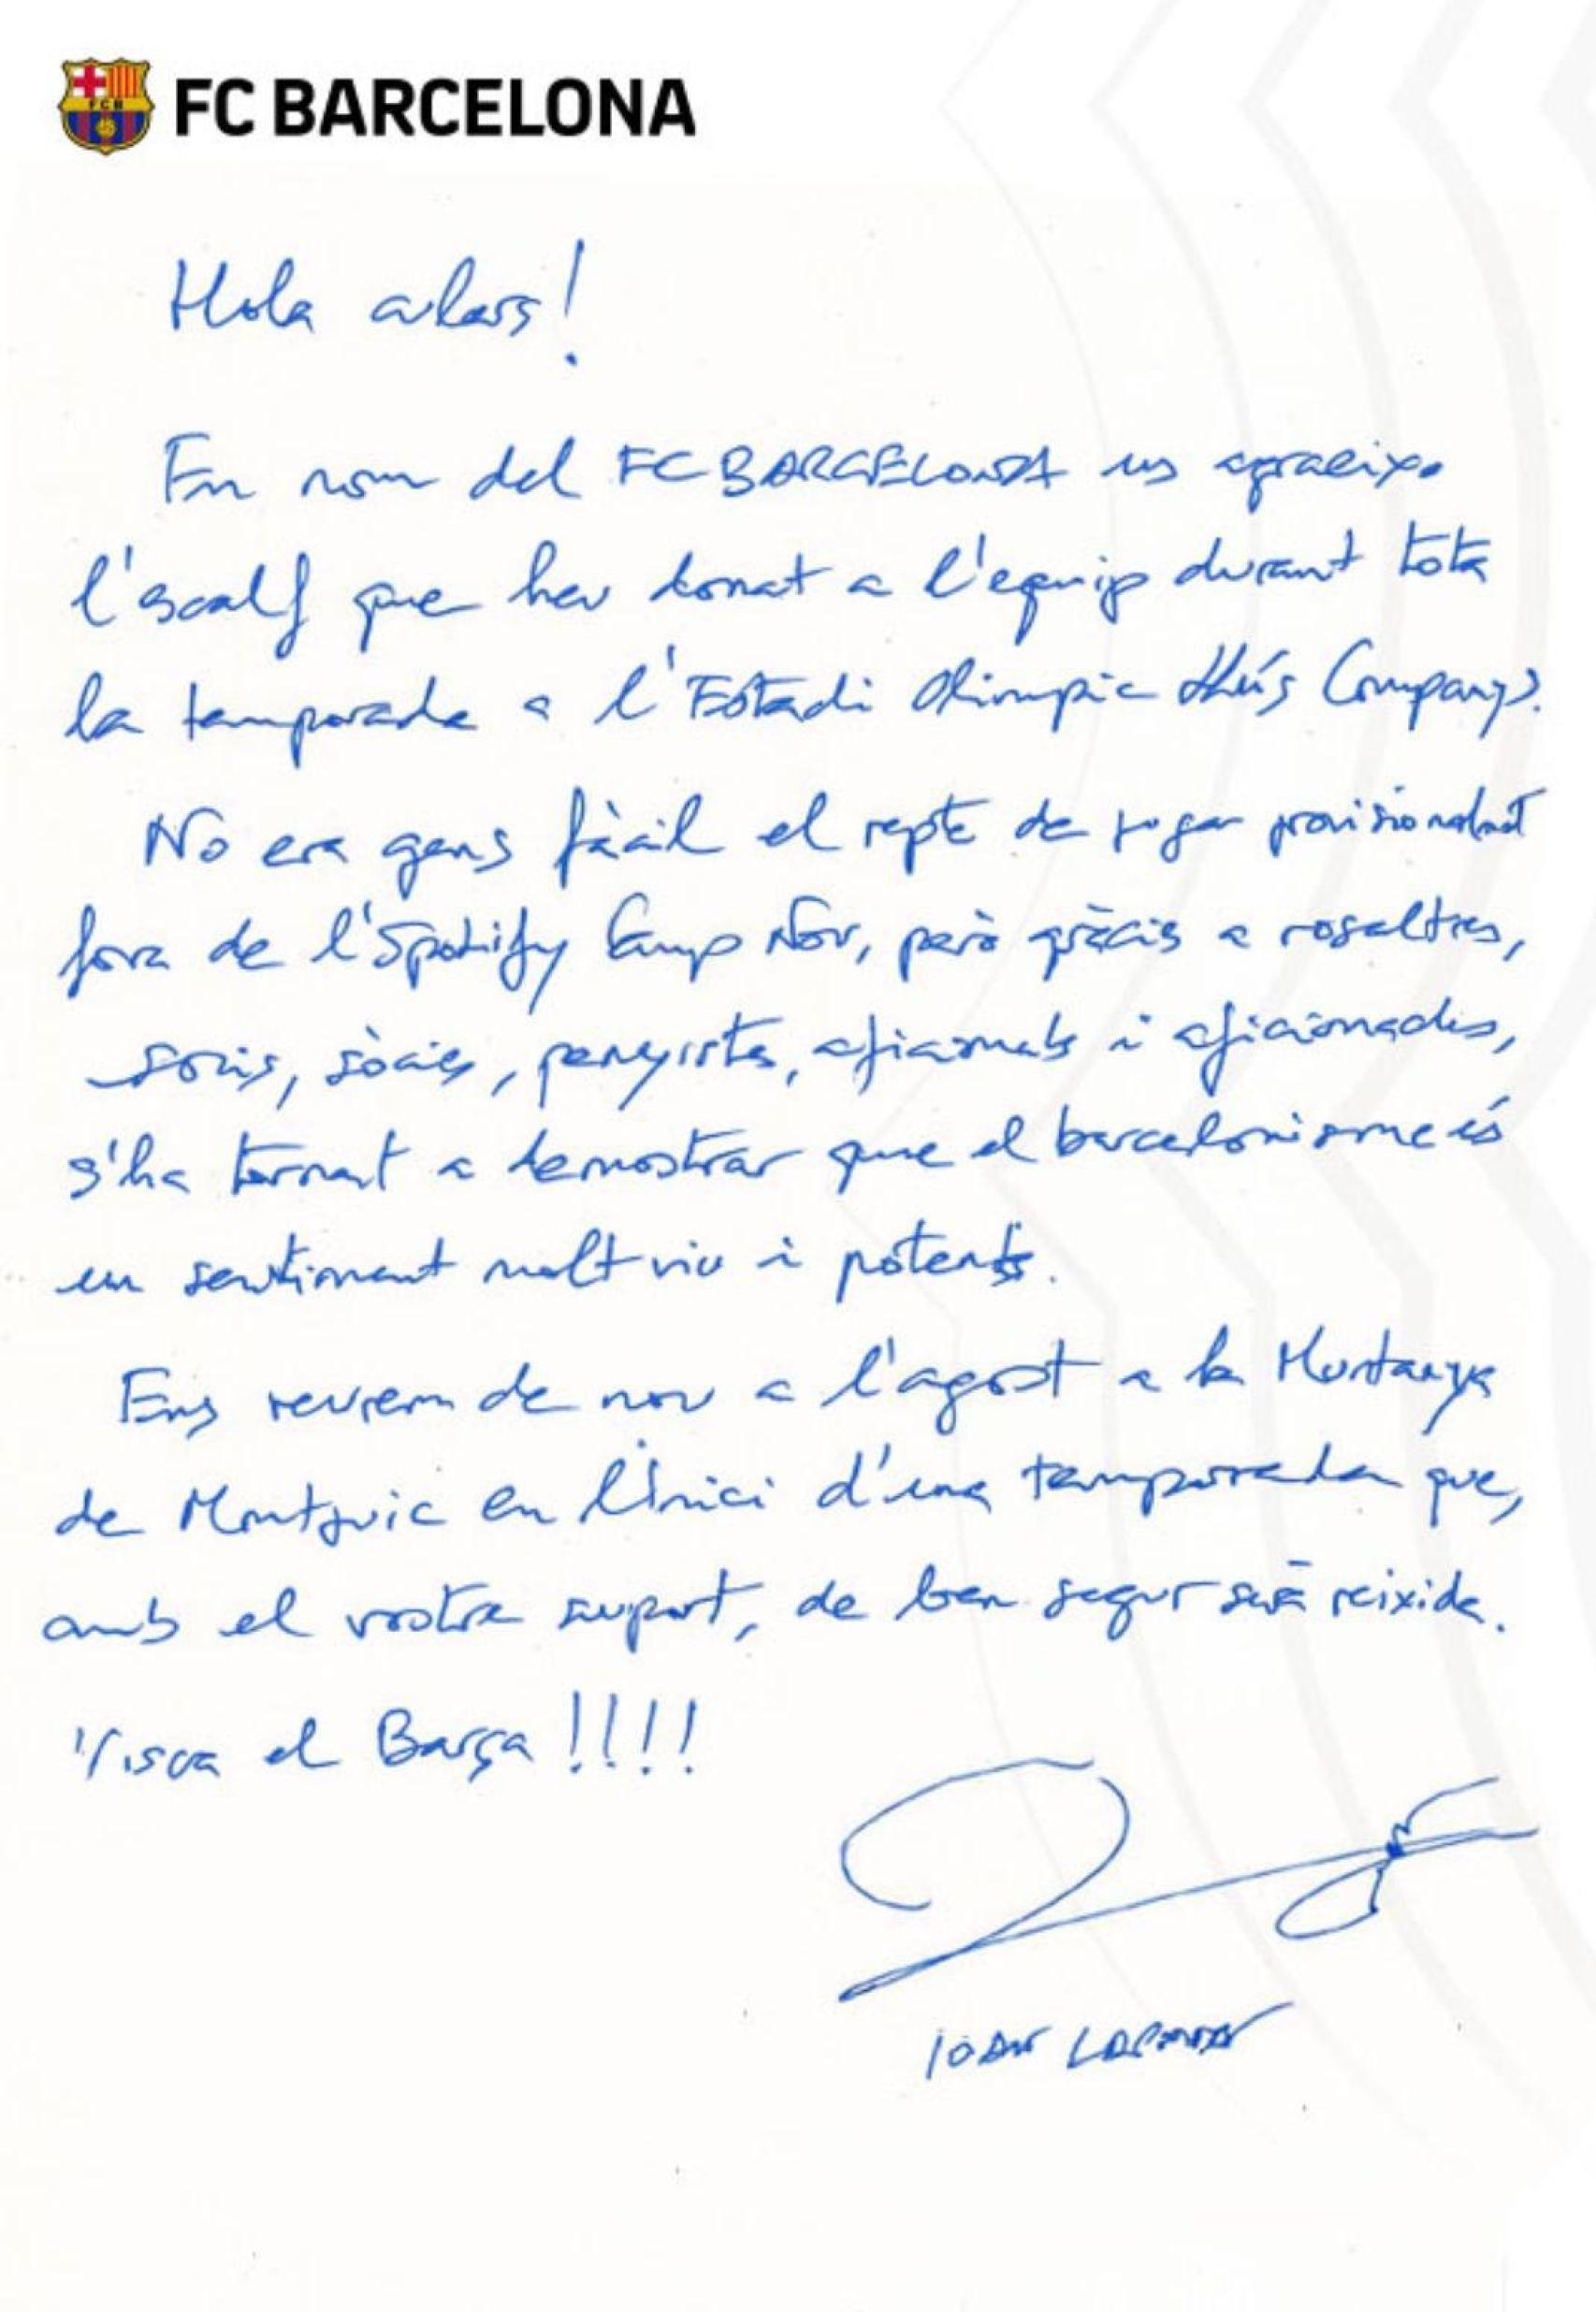 FC BARCELONA
Hola culers!
En nom del FC BARCELONA us agraeixo
l'escalf que heu donat a l'equip durant tota
la temporada a l'Estadi Olímpic Lluís Companys.
No era gens fàcil el repte de jugar provisionalment
fora de l'Spotify Camp Nou, però gràcies a vosaltres,
socis, sòcies, penyistes, aficionats i aficionades,
s'ha tornat a demostrar que el barcelonisme és
un sentiment molt viu i potent.
Ens veurem de nou a l'agost a la Muntanya
de Montjuïc en l'inici d'una temporada que,
amb el vostre suport, de ben segur serà reixida.
Visca el Barça!!!!
JOAN LAPORTA